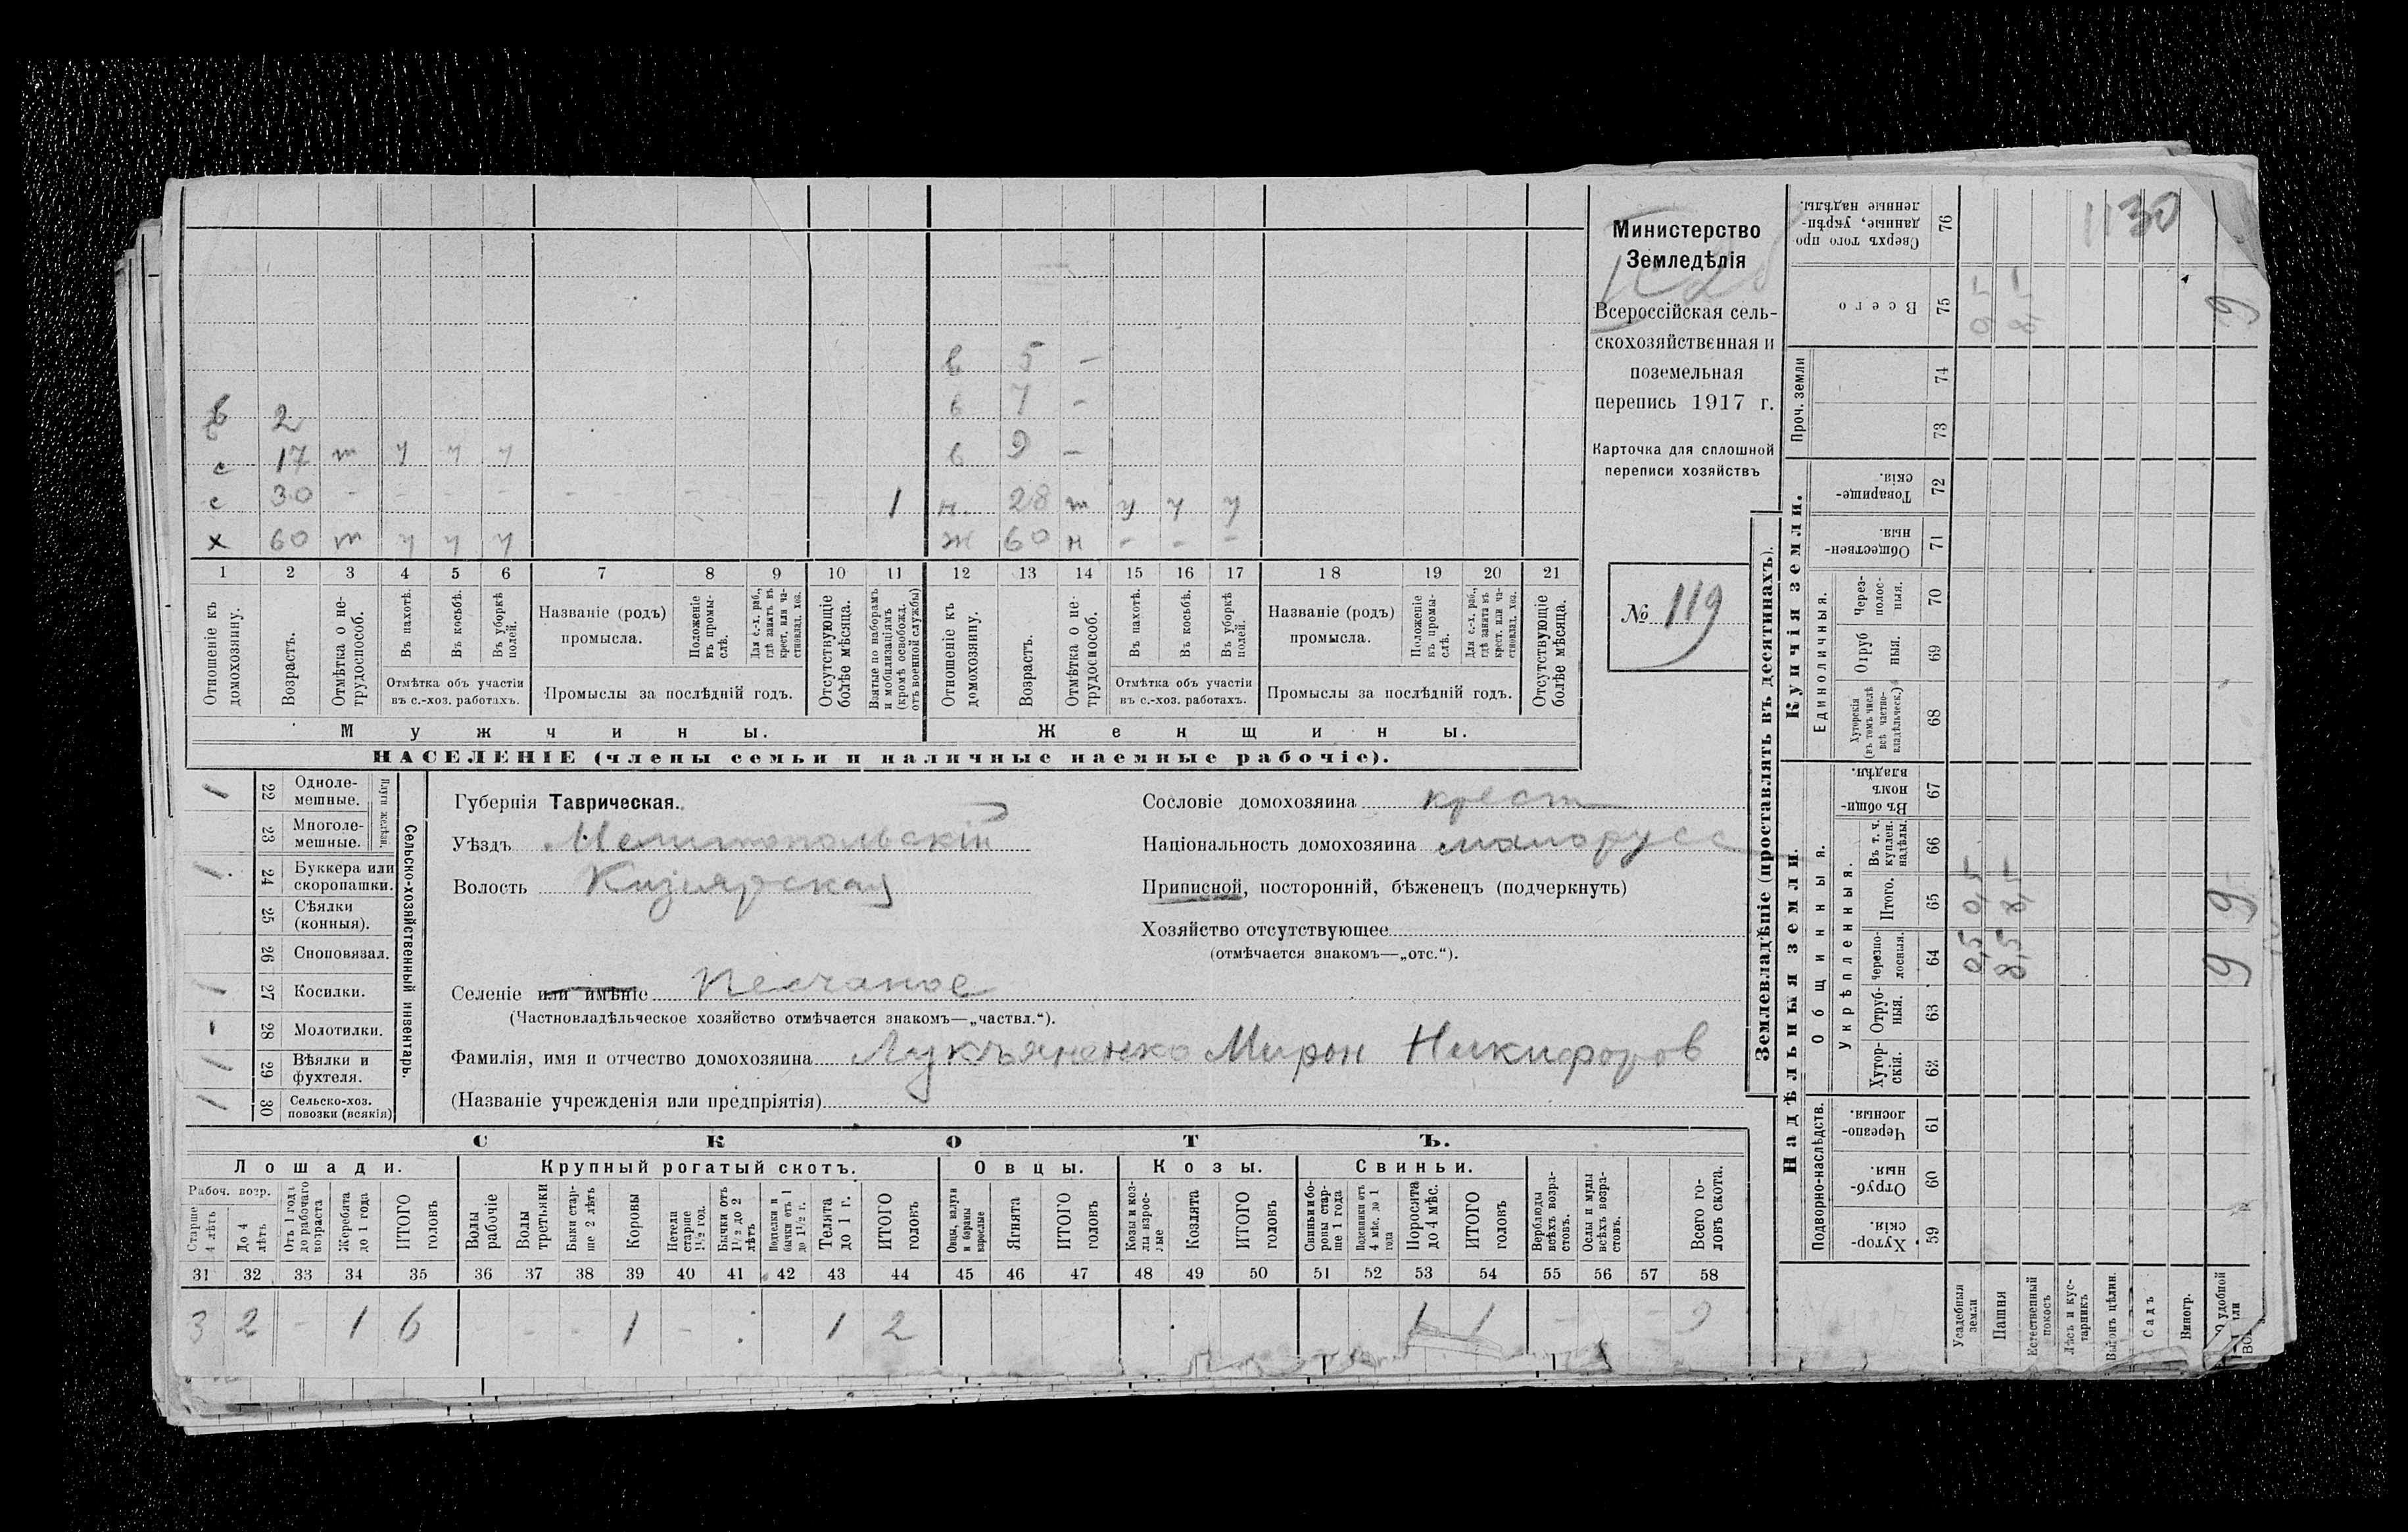 в 5 -
в 7 -
в 2
в 9 -
с 17 т у у у
с 30 - - - - - - - - 1
н. 28 т у у у
х 60 т у у у
ж 60 н - - -
1 2 3 4 5 6 7 8 9 10 11 12 13 14 15 16 17 18 19 20 21
Отношеніе къ домохозяину.
Возрастъ.
Отмѣтка о не-
трудоспособ.
Въ пахотѣ.
Въ косьбѣ.
Въ уборкѣ
полей.
Отмѣтка объ участіи
въ с.-хоз. работахъ.
Названіе (родъ)
промысла.
Положеніе
въ промы-
слѣ.
Для с.-х. раб.,
гдѣ занятъ въ
крест. или ча-
стновлад. хоз.
Промыслы за послѣдній годъ.
Отсутствующіе
болѣе мѣсяца.
Взятые по наборамъ
и мобилизаціямъ
(кромѣ освобожд.
отъ военной службы)
Отношеніе къ
домохозяину.
Возрастъ.
Отмѣтка о не-
трудоспособ.
Въ пахотѣ.
Въ косьбѣ.
Въ уборкѣ
полей.
Отмѣтка объ участіи
въ с.-хоз. работахъ.
Названіе (родъ)
промысла.
Положеніе
въ промы-
слѣ.
Для с.-х. раб.,
гдѣ занята въ
крест. или ча-
стновлад. хоз.
Промыслы за послѣдній годъ.
Отсутствующіе
болѣе мѣсяца.
Мужчины.
Женщины.
НАСЕЛЕНІЕ (члены семьи и наличные наемные рабочіе).
Министерство
Земледѣлія
Всероссійская сель-
скохозяйственная и
поземельная
перепись 1917 г.
Карточка для сплошной
переписи хозяйствъ
№ 119
1 22 Одноле-
мешные.
23 Многоле-
мешные.
Плуги желѣзн.
1 24 Буккера или
скоропашки.
25 Сѣялки
(конныя).
26 Сноповязал.
1 27 Косилки.
- 28 Молотилки.
1 29 Вѣялки и
фухтеля.
1 30 Сельско-хоз.
повозки (всякія)
Сельско-хозяйственный инвентарь.
Губернія Таврическая.
Уѣздъ Мелитопольскій
Волость Кизіярская
Селеніе или имѣніе Песчаное
(Частновладѣльческое хозяйство отмѣчается знакомъ—„частвл.“).
Фамилія, имя и отчество домохозяина Лукъяненко Мирон Никифоров
(Названіе учрежденія или предпріятія)
Сословіе домохозяина крест
Національность домохозяина малорусс
Приписной, посторонній, бѣженецъ (подчеркнуть)
Хозяйство отсутствующее
(отмѣчается знакомъ—„отс.“).
СКОТЪ.
Лошади.
Крупный рогатый скотъ.
Овцы.
Козы.
Свиньи.
Рабоч. возр.
Старше
4 лѣтъ
До 4
лѣтъ
Отъ 1 года
до рабочаго
возраста
Жеребята
до 1 года
ИТОГО
головъ
Волы
рабочіе
Волы
третьяки
Быки стар-
ше 2 лѣтъ
Коровы
Нетели
старше
1½ год.
Бычки отъ
1½ до 2
лѣтъ
Подтелки и
бычки отъ 1
до 1½ г.
Телята
до 1 г.
ИТОГО
головъ
Овцы, валухи
и бараны
взрослые
Ягнята
ИТОГО
головъ
Козы и коз-
лы взрос-
лые
Козлята
ИТОГО
головъ
Свиньи и бо-
ровы стар-
ше 1 года
Подсвинки отъ
4 мѣс. до 1
года
Поросята
до 4 мѣс.
ИТОГО
головъ
Верблюды
всѣхъ возра-
стовъ.
Ослы и мулы
всѣхъ возра-
стовъ.
Всего го-
ловъ скота.
31 32 33 34 35 36 37 38 39 40 41 42 43 44 45 46 47 48 49 50 51 52 53 54 55 56 57 58
3 2 - 1 6 - - 1 - 1 2 1 1 - - 9
Землевладѣніе (проставлять въ десятинахъ).
Надѣльныя земли.
Купчія земли.
Проч. земли
Подворно-наслѣдств.
Общинныя.
Укрѣпленныя.
Единоличныя.
Хутор-
скія.
59
Отруб-
ныя.
60
Черезпо-
лосныя.
61
Хутор-
скія.
62
Отруб-
ныя.
63
Черезпо-
лосныя.
64
Итого.
65
Въ т. ч.
куплен.
надѣлы.
66
Въ общи-
номъ
владѣн.
67
Хуторскія
(въ томъ числѣ
всѣ частно-
владѣльческ.)
68
Отруб
ныя.
69
Через-
полос-
ныя.
70
Обществен-
ныя.
71
Товарище-
скія.
72
73
74
Всего
75
Сверхъ того про-
данные, укрѣп-
ленные надѣлы.
76
Усадебныя
земли
0,5 0,5 0,5
Пашня
8,5 8,5 8,5
Естественный
покосъ
Лѣсъ и кус-
тарникъ
Выгонъ цѣлин.
Садъ
Виногр.
удобной
9 9 9
1130